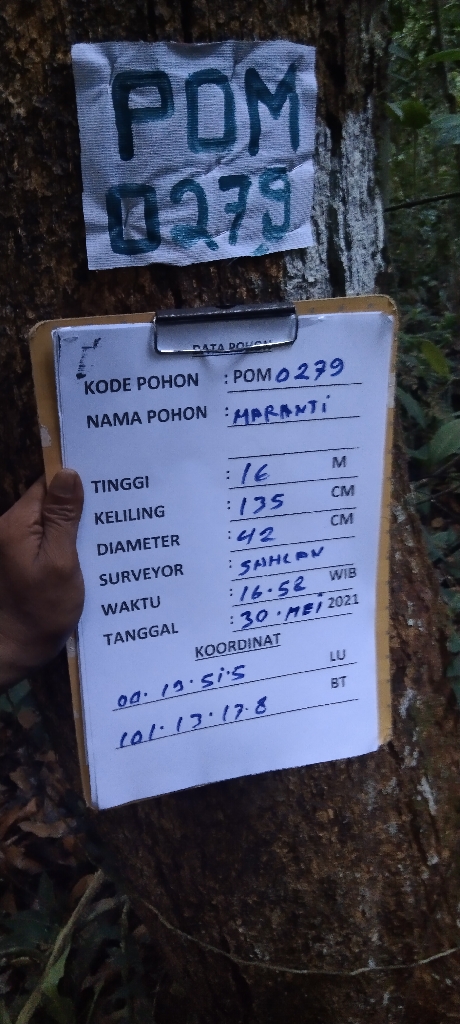 POM
0279
DATA POHON
KODE POHON : POM 0279
NAMA POHON : MARANTI
TINGGI : 16 M
KELILING : 135 CM
DIAMETER : 42 CM
SURVEYOR : SAHLAN
WAKTU : 16.52 WIB
TANGGAL : 30. MEI 2021
KOORDINAT
00. 19. 51.5 LU
101. 13. 17. 8 BT